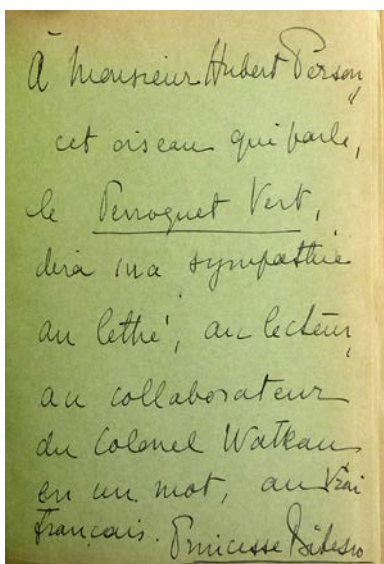 À Monsieur Hubert Person,
cet oiseau qui parle,
le Perroquet Vert,
dira ma sympathie
au lettré, au lecteur,
au collaborateur
du Colonel Watteau
en un mot, au vrai
français. Princesse Bibesco